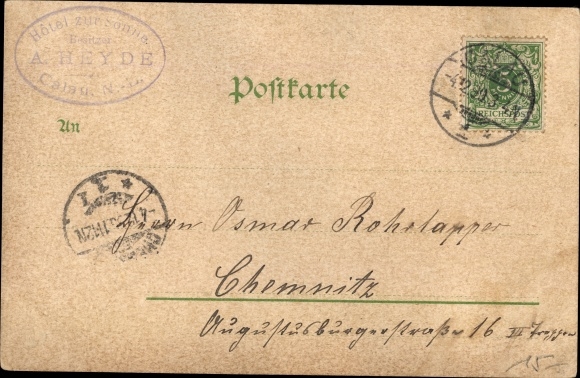 Hôtel zur Sonne
Besitzer
A. HEYDE
Calau N.-L.
Postkarte
An
5
REICHSPOST
Herrn Osmar Rohrlapper
Chemnitz
Augustusburgerstraße 16 III Treppen
15-